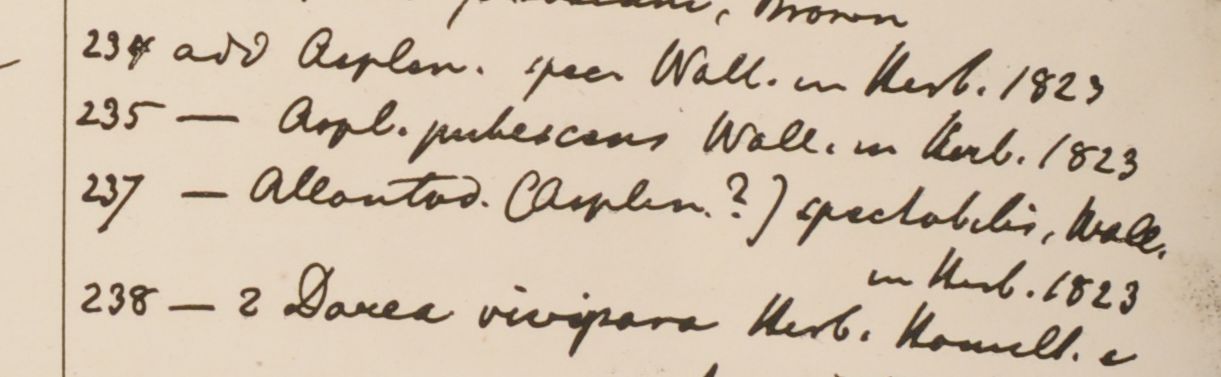 Brown
234 add Asplen. spec Wall. in Herb. 1823
235 — Aspl. pubescens Wall. in Herb. 1823
237 — Allantod. (Asplen. ?) spectabilis, Wall.
in Herb. 1823
238 — 2 Darea vivipara Herb. Hamilt. e